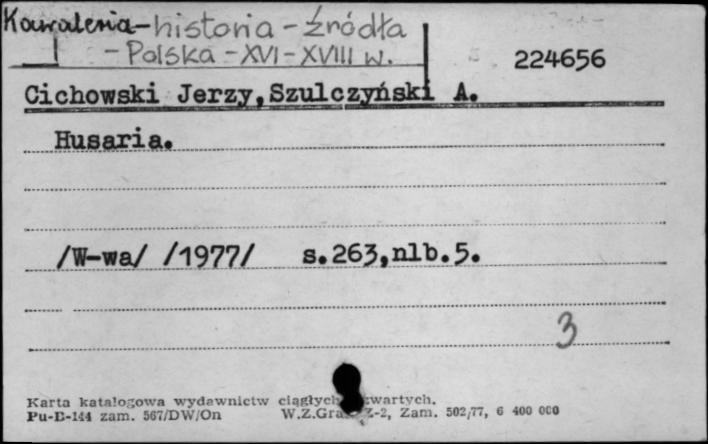 Kawaleria-historia - źródła
- Polska - XVI - XVIII w.
224656
Cichowski Jerzy, Szulczyński A.
Husaria.
/W-wa/ /1977/ s.263,nlb.5.
3
Karta katalogowa wydawnictw ciągłych zwartych.
Pu-B-144 zam. 567/DW/On W.Z.Graf. Z-2, Zam. 502/77, 6 400 000